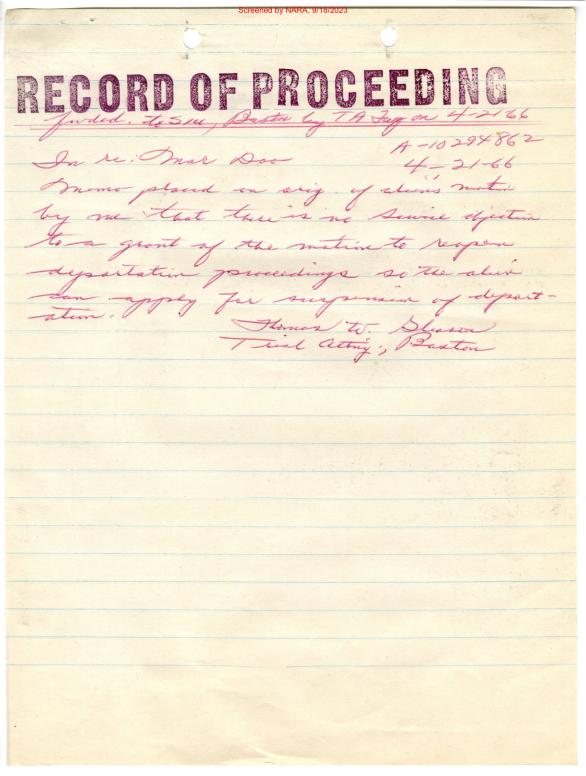 Screened by NARA, 9/18/2023
RECORD OF PROCEEDING
fwded. to SIU, Boston by TA on 4-21-66
A-10294862
In re: Mar Doo 4-21-66
Memo placed on orig. of alien's motion
by me that there is no Service objection
to a grant of the motion to reopen
deportation proceedings so the alien
can apply for suspension of deport-
ation.
Thomas W. Gleason
Trial Att'ny, Boston